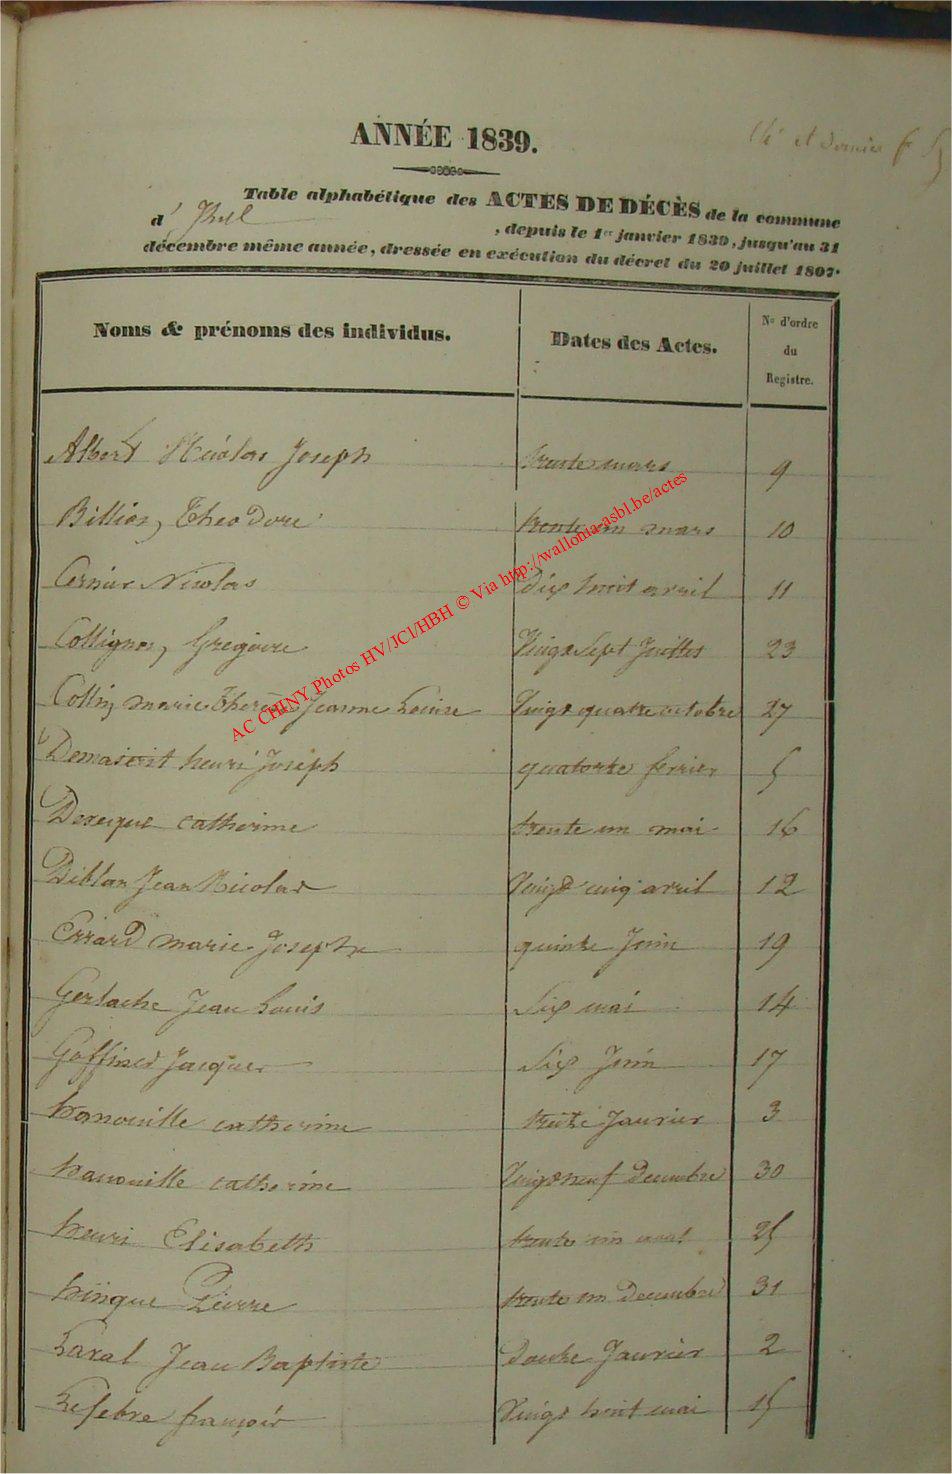 ANNÉE 1839.
et dernier f
Table alphabétique des ACTES DE DÉCÈS de la commune
d'Izel , depuis le 1er janvier 1839, jusqu'au 31
décembre même année, dressée en exécution du décret du 20 juillet 1807.
Noms & prénoms des individus. Dates des Actes. No d'ordre du Registre.
Albert Nicolas Joseph trente mars 9
Billion, Theodore trente un mars 10
Cernier Nicolas Dix huit avril 11
Collignon, Gregoire Vingt Sept Juillet 23
Collin marie Therèse Jeanne Louise Vingt quatre octobre 27
Demaierit henri Joseph quatorze fevrier 5
Dereque catherine trente un mai 16
Diblan Jean Nicolas Vingt cinq avril 12
Errard marie Josephe quinze Juin 19
Gerlache Jean Louis Six mai 14
Goffinet Jacques Six Juin 17
hanouille catherine treize Janvier 3
hanouille catherine Vingt neuf Decembre 30
henri Elisabeth trente un aout 25
hinque Pierre trente un Decembre 31
Laval Jean Baptiste Douze Janvier 2
Lefebre françois Vingt huit mai 15
AC CHINY Photos HV/JCl/HBH © Via http://wallonia-asbl.be/actes